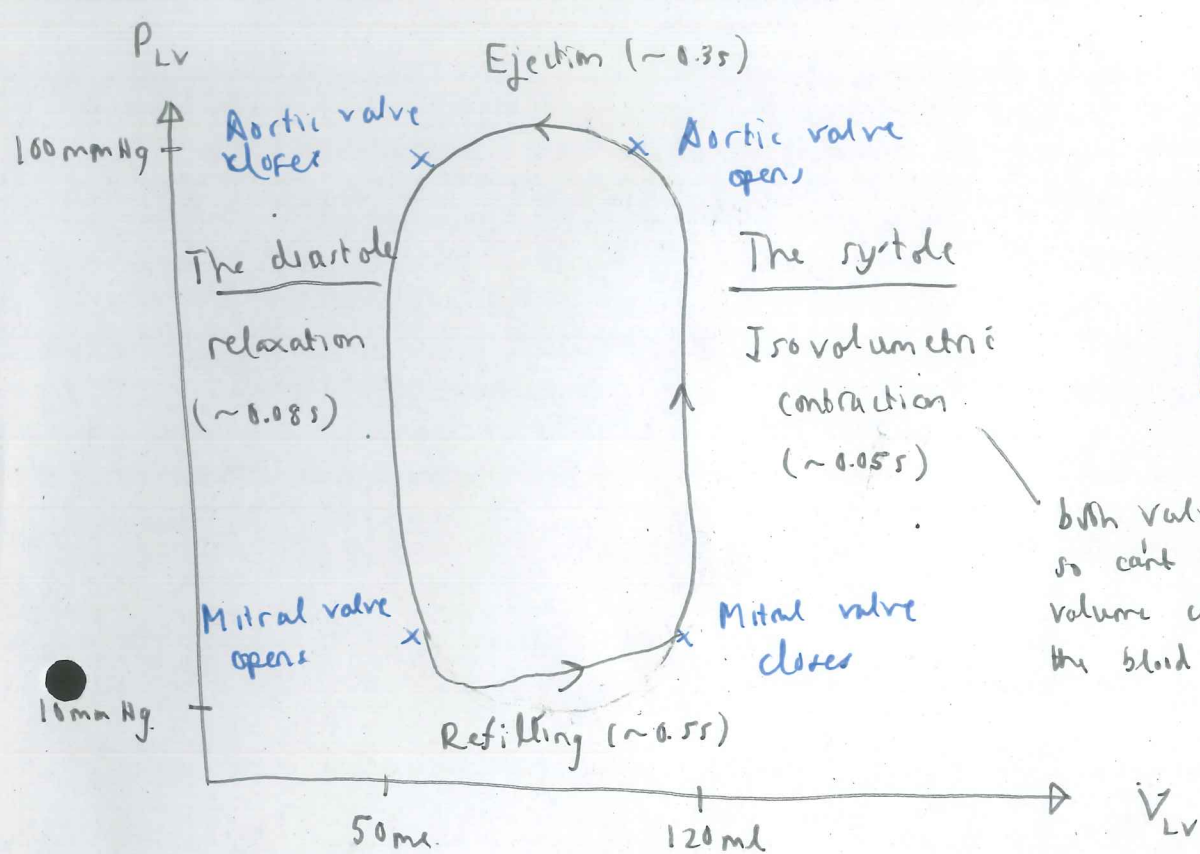 P_LV
Ejection (~0.3s)
100 mmHg
Aortic valve
closes
Aortic valve
opens
The diastole
relaxation
(~0.08s)
The systole
Isovolumetric
contraction
(~0.05s)
both
so can't
volume
the blood
Mitral valve
opens
Mitral valve
closes
10mm Hg
Refilling (~0.5s)
50ml
120ml
V_LV